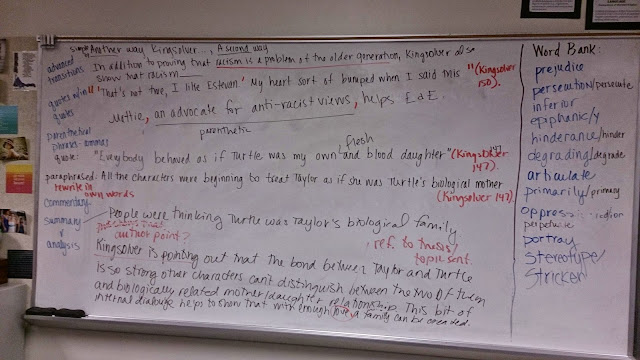 simple Another way Kingsolver..., A second way
advanced transitions
In addition to proving that racism is a problem of the older generation, Kingsolver also
show that racism
quotes w/in quotes
"'That's not true, I like Estevan.' My heart sort of bumped when I said this" (Kingsolver 150).
Mattie, an advocate for anti-racist views, helps E & E.
parenthetical phrases - commas
parenthetic
quote: "Everybody behaved as if Turtle was my own flesh and blood daughter" (Kingsolver 147).
paraphrased: All the characters were beginning to treat Taylor as if she was Turtle's biological mother
rewrite in own words
(Kingsolver 147)
commentary
summary & analysis
People were thinking Turtle was Taylor's biological family
author point?
ref. to thesis/
topic sent.
Kingsolver is pointing out that the bond between Taylor and Turtle
is so strong other characters can't distinguish between the two of them
and biologically related mother/daughter relationship. This bit of
internal dialouge helps to show that with enough love, a family can be created.
Word Bank:
prejudice
persecution/persecute
inferior
epiphanic/y
hinderance/hinder
degrading/degrade
articulate
primarily/primary
portray
stereotype/
stricken